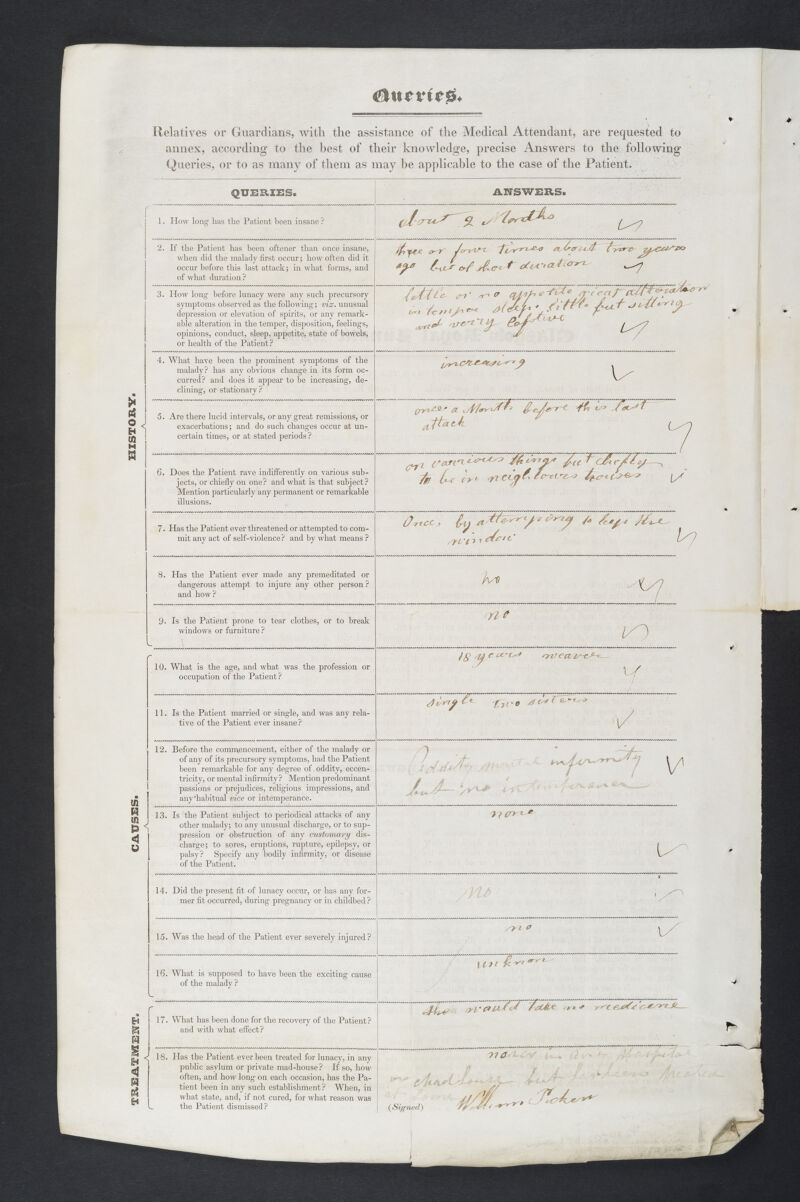 Queries.
Relatives or Guardians, with the assistance of the Medical Attendant, are requested to
annex, according to the best of their knowledge, precise Answers to the following
Queries, or to as many of them as may be applicable to the case of the Patient.
QUERIES.
ANSWERS.
HISTORY.
1. How long has the Patient been insane?
about 2 Months
2. If the Patient has been oftener than once insane,
when did the malady first occur; how often did it
occur before this last attack; in what forms, and
of what duration?
three or four times about two years
ago but of short duration
3. How long before lunacy were any such precursory
symptoms observed as the following; viz. unusual
depression or elevation of spirits, or any remark-
able alteration in the temper, disposition, feelings,
opinions, conduct, sleep, appetite, state of bowels,
or health of the Patient?
little or no appetite great alteration
in temper sleeps little but sitting
and verry
4. What have been the prominent symptoms of the
malady? has any obvious change in its form oc-
curred? and does it appear to be increasing, de-
clining, or stationary?
increasing
5. Are there lucid intervals, or any great remissions, or
exacerbations; and do such changes occur at un-
certain times, or at stated periods?
once a Month before this last
attack
6. Does the Patient rave indifferently on various sub-
jects, or chiefly on one? and what is that subject?
Mention particularly any permanent or remarkable
illusions.
on varrious things but chefley
to be in neighbours houses
7. Has the Patient ever threatened or attempted to com-
mit any act of self-violence? and by what means?
Once, by attempting to leap the
window
8. Has the Patient ever made any premeditated or
dangerous attempt to injure any other person?
and how?
no
9. Is the Patient prone to tear clothes, or to break
windows or furniture?
no
CAUSES.
10. What is the age, and what was the profession or
occupation of the Patient?
18 years weaver
11. Is the Patient married or single, and was any rela-
tive of the Patient ever insane?
single two sisters
12. Before the commencement, either of the malady or
of any of its precursory symptoms, had the Patient
been remarkable for any degree of oddity, eccen-
tricity, or mental infirmity? Mention predominant
passions or prejudices, religious impressions, and
any habitual vice or intemperance.
Oddity mental infirmity
but no intemperance
13. Is the Patient subject to periodical attacks of any
other malady; to any unusual discharge, or to sup-
pression or obstruction of any customary dis-
charge; to sores, eruptions, rupture, epilepsy, or
palsy? Specify any bodily infirmity, or disease
of the Patient.
none
14. Did the present fit of lunacy occur, or has any for-
mer fit occurred, during pregnancy or in childbed?
No
15. Was the head of the Patient ever severely injured?
no
16. What is supposed to have been the exciting cause
of the malady?
unknon
TREATMENT.
17. What has been done for the recovery of the Patient?
and with what effect?
She would take no medicine
18. Has the Patient ever been treated for lunacy, in any
public asylum or private mad-house? If so, how
often, and how long on each occasion, has the Pa-
tient been in any such establishment? When, in
what state, and, if not cured, for what reason was
the Patient dismissed?
never in any Hospital
or madhouse but
(Signed)
William Picken